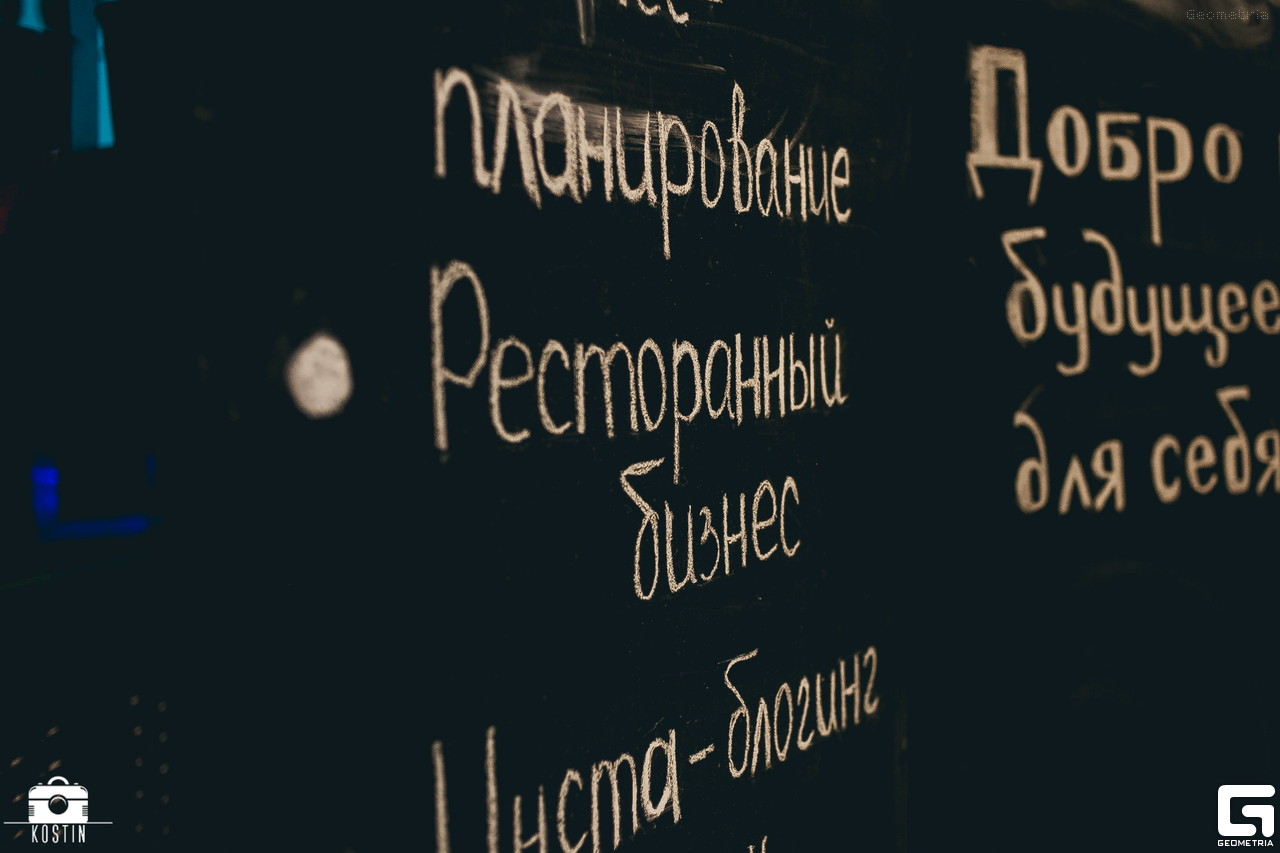 планирование
Ресторанный
бизнес
Инста-блогинг
Добро
будущее
для себя
Geometria
KOSTIN
GEOMETRIA